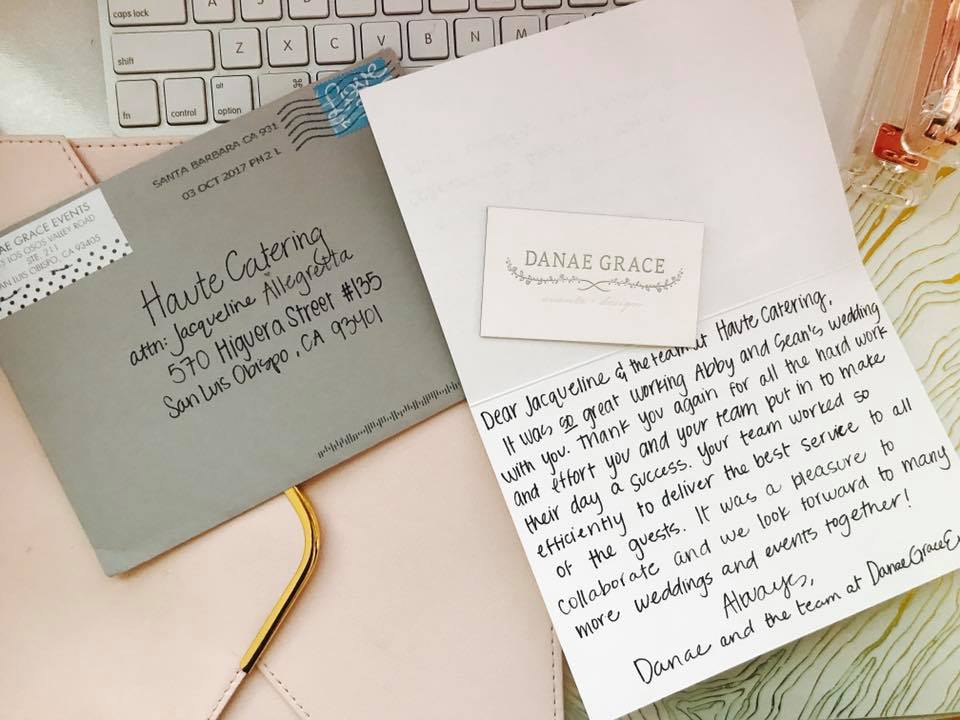 caps lock
shift
Z
X
C
V
B
N
M
fn
control
alt
option
⌘
SANTA BARBARA CA 931
03 OCT 2017 PM 2 L
AE GRACE EVENTS
LOS OSOS VALLEY ROAD
STE. 211
SAN LUIS OBISPO, CA 93405
Haute Catering
attn: Jacqueline Allegretta
570 Higuera Street #135
San Luis Obispo, CA 93401
DANAE GRACE
events + design
Dear Jacqueline & the team at Haute Catering,
It was so great working Abby and Sean's wedding
with you. Thank you again for all the hard work
and effort you and your team put in to make
their day a success. Your team worked so
efficiently to deliver the best service to all
of the guests. It was a pleasure to
collaborate and we look forward to many
more weddings and events together!
Always,
Danae and the team at Danae Grace E